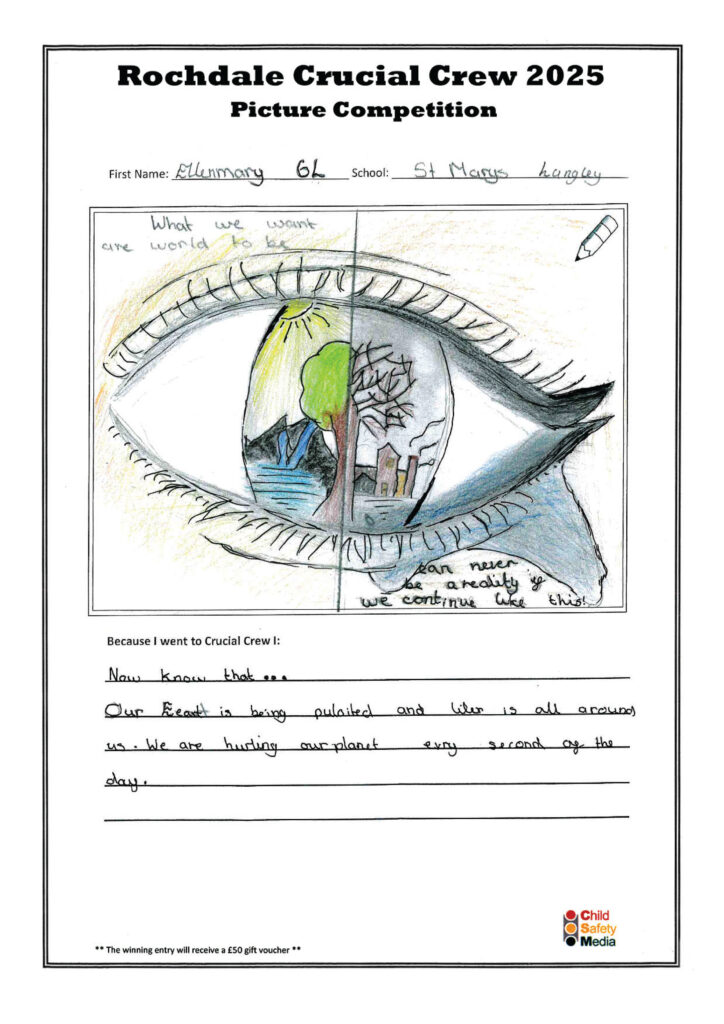 Rochdale Crucial Crew 2025
Picture Competition
First Name: Ellenmary 6L School: St Marys Langley
What we want
are world to be
can never
be a reality if
we continue like this!
Because I went to Crucial Crew I:
Now know that...
Our Eeart is being pulnited and liter is all around
us. We are hurting our planet evry second of the
day.
Child
Safety
Media
** The winning entry will receive a £50 gift voucher **